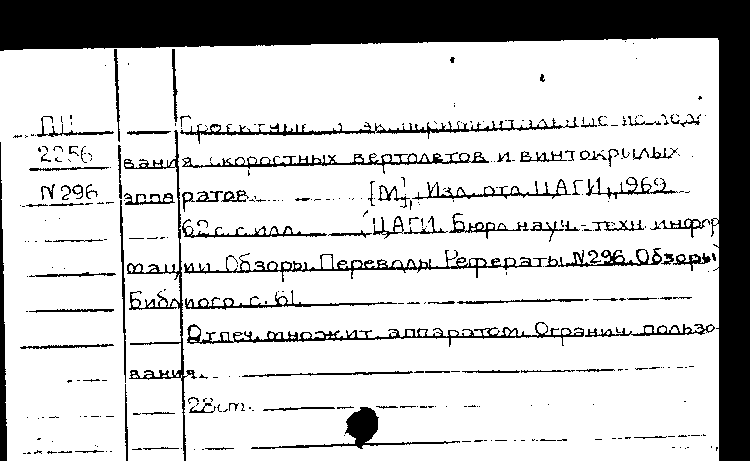 ПП Проектные и экспериментальные исследо
2256 вания скоростных вертолетов и винтокрылых
N296 аппаратов. [М], Изд. отд. ЦАГИ, 1969
62 с. с илл. (ЦАГИ. Бюро науч.-техн информ
мации. Обзоры. Переводы. Рефераты N296. Обзоры)
Библиогр. с. 61.
Отпеч. множит. аппаратом. Огранич. пользо-
вания.
28ст.